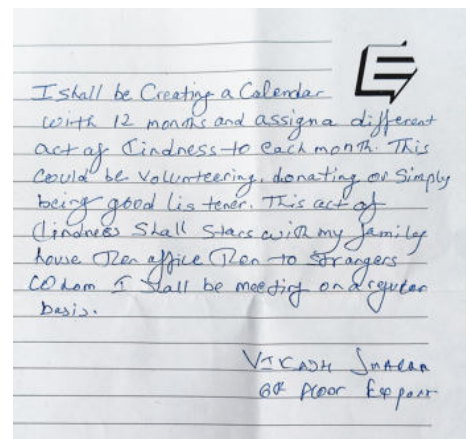 I shall be Creating a Calendar
with 12 months and assign a different
act of Kindness to each month. This
Could be Volunteering, donating or Simply
being good listener. This act of
Kindness Shall Start with my family
house Then office Then to strangers
whom I shall be meeting on a regular
basis.
VIKASH
6th Floor Export